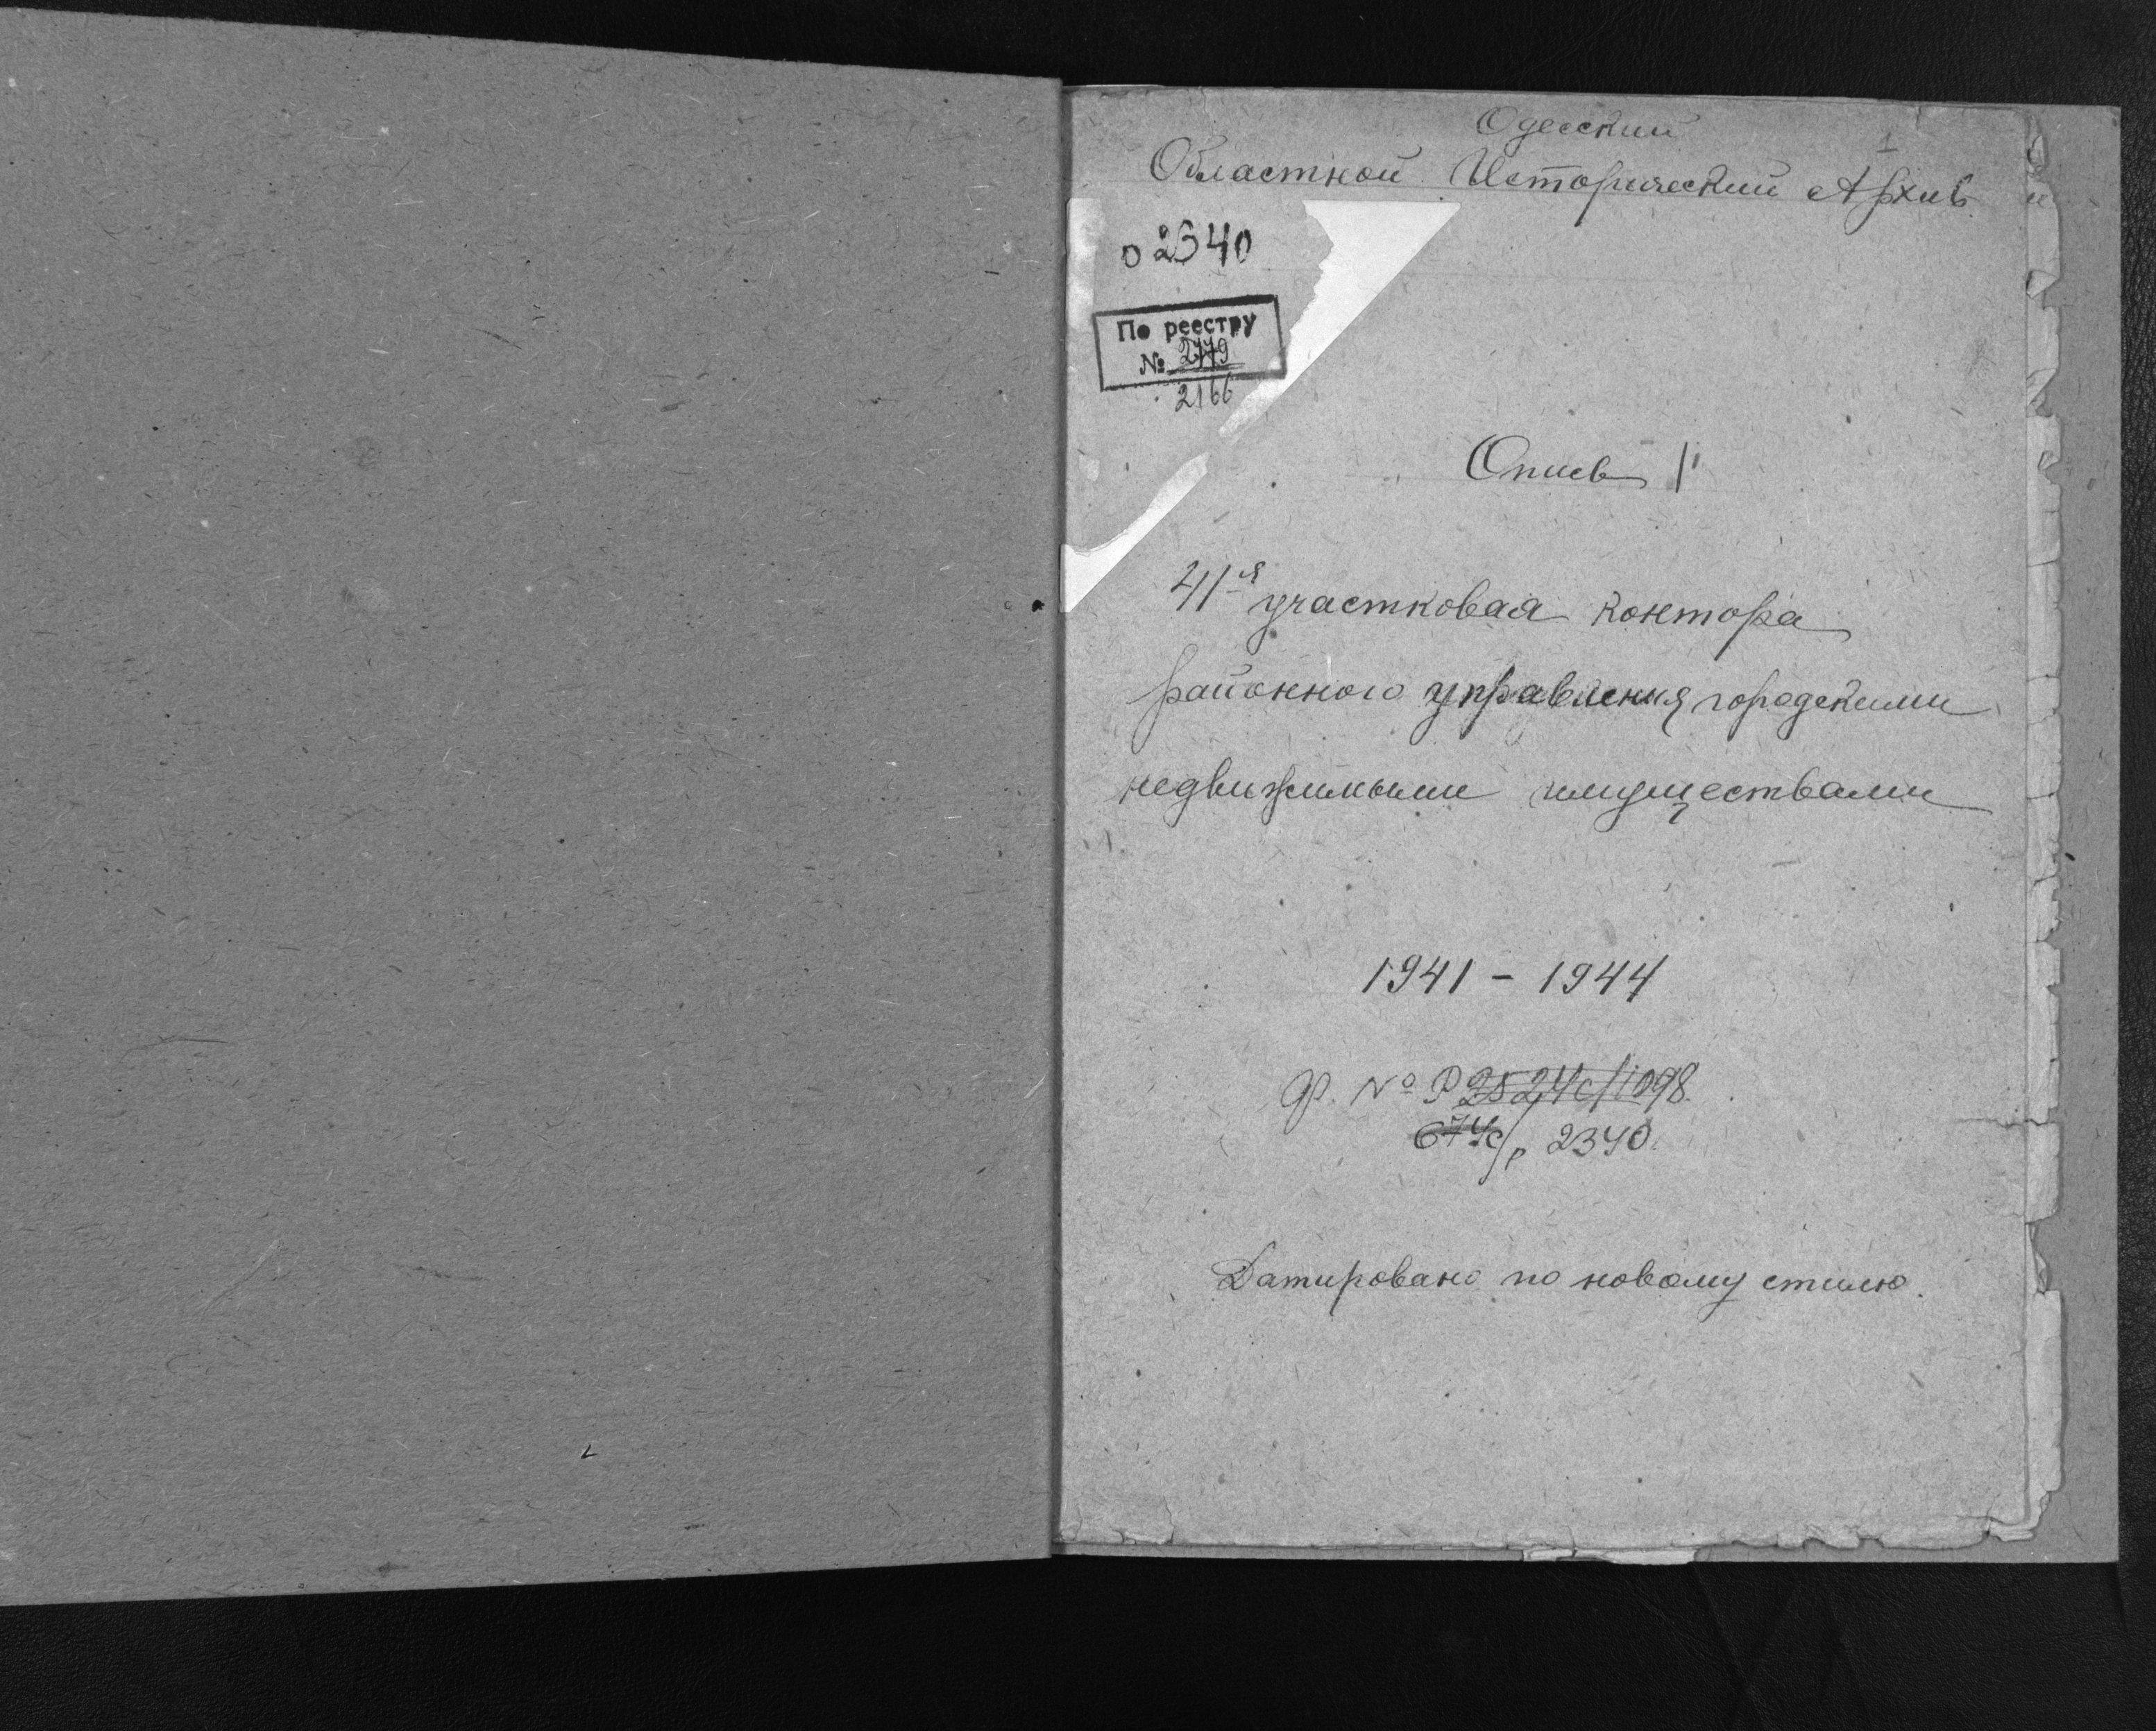 1
Одесский
Областной Исторический Архив
02340
По реестру
№ 2779
2166
Опись 1
41-я участковая контора
районного управления городскими
недвижимыми имуществами
1941 - 1944
Ф. № Р 2524с/1098
674с/р 2340
Датировано по новому стилю.